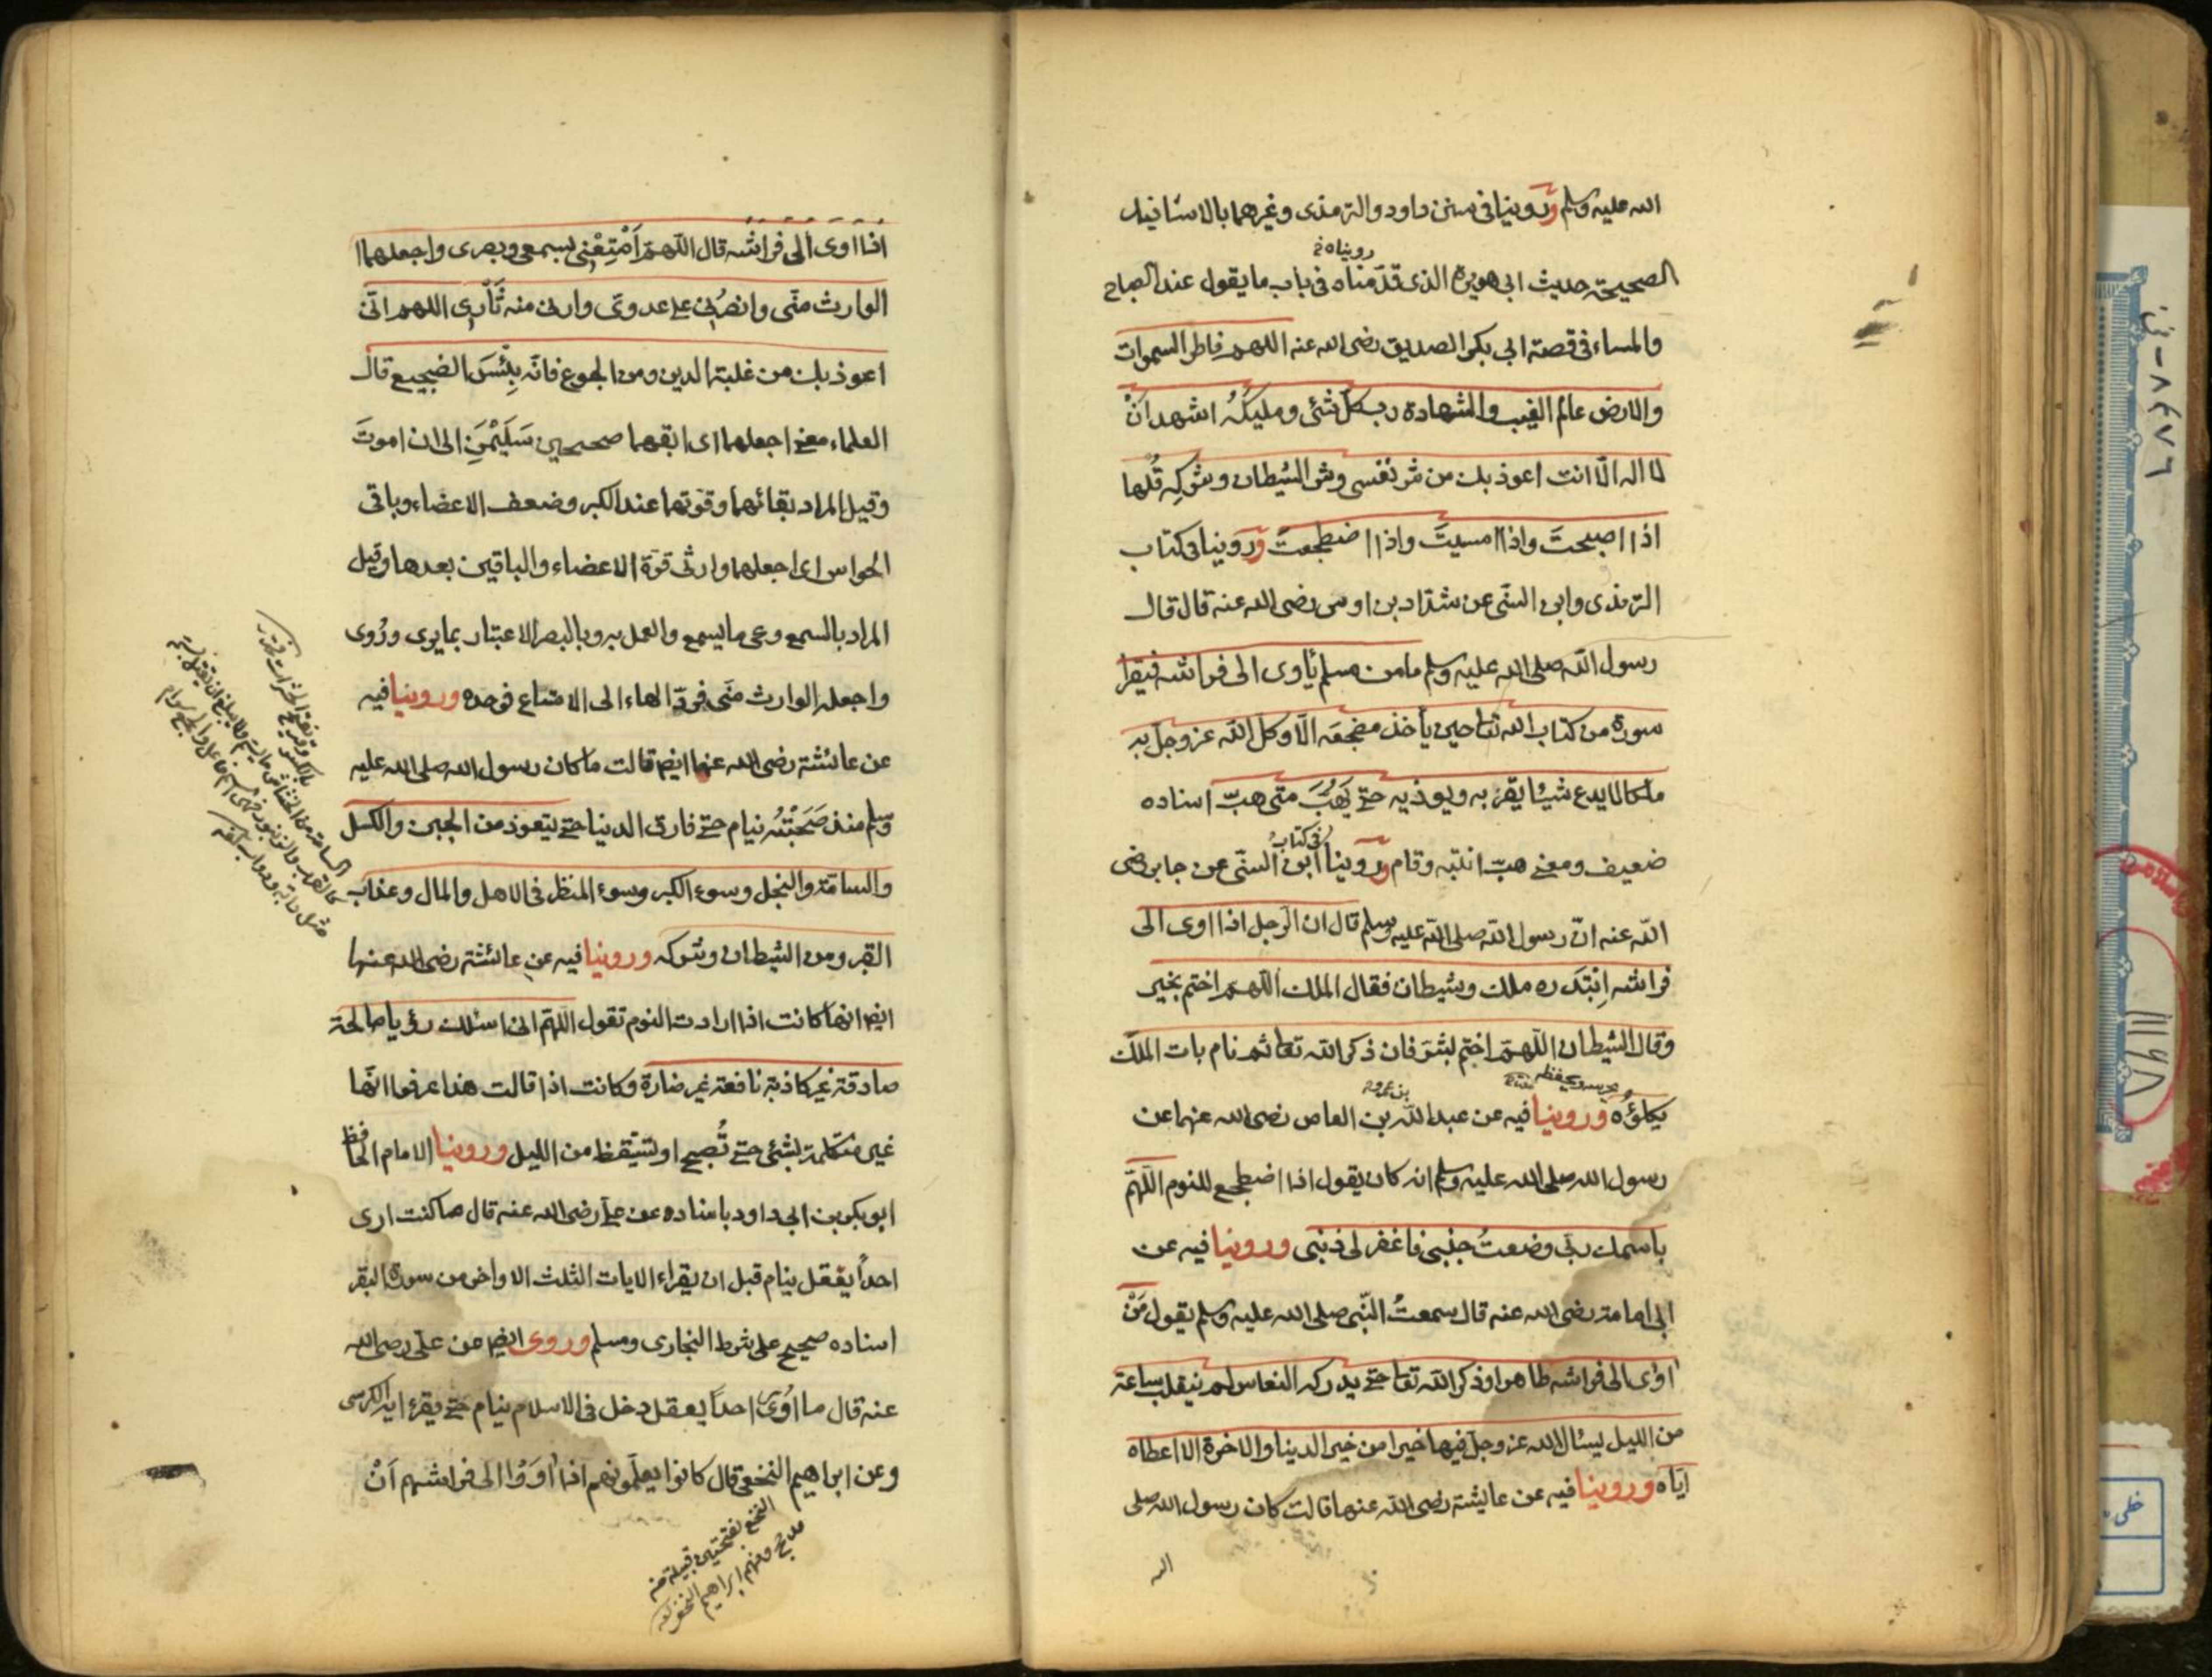 الله عليه وسلم وروينا فى سنن داود والترمذى وغيرهما بالاسانيد
رويناه خ
الصحيحة حديث ابى هويرة الذى قدّمناه فى باب ما يقول عند الصباح
والمساء فى قصة ابى بكر الصديق رضى الله عنه اللهم فاطر السموات
والارض عالم الغيب والشهادة رب كلّ شئ ومليكَهُ اشهد انْ
لا اله الّا انت اعوذ بك من شر نفسى وشر الشيطان وشركِه قُلها
اذا اصبحتَ واذا امسيتَ واذا اضطجعتَ وروينا فى كتاب
الترمذى وابن السنّى عن شدّاد بن اوس رضى الله عنه قال قال
رسول الله صلى الله عليه وسلم ما من مسلم يأوى الى فراشه فيقرأ
سورة من كتاب الله تعا حين يأخذ مضجعَه الّا وكل الله عز وجل به
ملكا لا يدع شيئا يقربه ويوذيه حتے يَهُبَّ متى هبّ اسناده
فى كتاب
ضعيف ومعنے هبّ انتبه وقام وروينا ابن السنّى عن جابر رضى
الله عنه انّ رسول الله صلى الله عليه وسلم قال ان الرجل اذا اوى الى
فراشه اِبْتَدَره ملك وشيطان فقال الملك اللهم اختم بخير
وقال الشيطان اللهم اختم بشر فان ذكر الله تعا ثم نام بات الملك
يكلؤُه وروينا فيه عن عبد الله بن العاص رضى الله عنهما عن
رسول الله صلى الله عليه وسلم انه كان يقول اذا اضطجع للنوم اللهمّ
باسمك ربّى وضعتُ جنبى فاغفر لى ذنبى وروينا فيه عن
ابى امامة رضى الله عنه قال سمعتُ النّبى صلى الله عليه وسلم يقول مَنْ
اوى الى فراشه طاهرا وذكر الله تعا حتے يدركه النعاس لم ينقلب ساعة
من الليل يسئال الله عز وجل فيها خيرا من خير الدنيا والاخرة الا اعطاه
ايّاه وروينا فيه عن عايشة رضى الله عنها قالت كان رسول الله صلى
اذا اوى الى فراشه قال اللّهمّ اَمْتِعْنِى بسمعى وبصرى واجعلهما
الوارث منّى وانصُرْنى على عدوى وارنى منه ثَأْرِى اللهم انّى
اعوذ بك من غلبة الدين ومن الجوع فانّه بِئْسَ الضجيع قال
العلماء معنے اجعلهما اى ابقهما صحيحين سَلَيْمَنِ الى ان اموتَ
وقيل المراد بقائهما وقوتهما عند الكبر وضعف الاعضاء وباقى
الحواس اى اجعلهما وارثى قوّة الاعضاء والباقين بعدها وقيل
المراد بالسمع وعى ما يسمع والعمل به وبالبصر الاعتبار بما يرى ورُوى
واجعله الوارث منّى فردّ الهاء الى الامتاع فوحده وروينا فيه
عن عائشة رضى الله عنها ايضا قالت ما كان رسول الله صلى الله عليه
وسلم منذ صَحَبْتُه ينام حتے فارق الدنيا حتے يتعوذ من الجبن والكسل
والسامة والبخل وسوء الكبر وسوء المنظر فى الاهل والمال وعذاب
القبر ومن الشيطان وشركه وروينا فيه عن عائشة رضى الله عنها
ايضا انها كانت اذا ارادت النوم تقول اللهمّ انى اسئلك رؤيا صالحة
صادقة غير كاذبة نافعة غير ضارة وكانت اذا قالت هذا عرفوا انّها
غير متكلمة بشئ حتے تُصبح او تستيقظ من الليل وروينا الامام الحافظ
ابو بكر بن ابى داود باسناده عن على رضى الله عنه قال ما كنت ارى
احداً يعقل ينام قبل ان يقراء الايات الثلث الاواخر من سورة البقر
اسناده صحيح على شرط البخارى ومسلم وروى ايضا عن علىّ رضى الله
عنه قال ما اوى احداً يعقل دخل فى الاسلام ينام حتے يقرء اية الكرسى
وعن ابراهيم النخعى قال كانوا يعلّمونهم اذا اَوَوْا الى فراشهم اَنْ
النخع بفتحتين قبيلة من
مذحج ومنهم ابراهيم النخعى